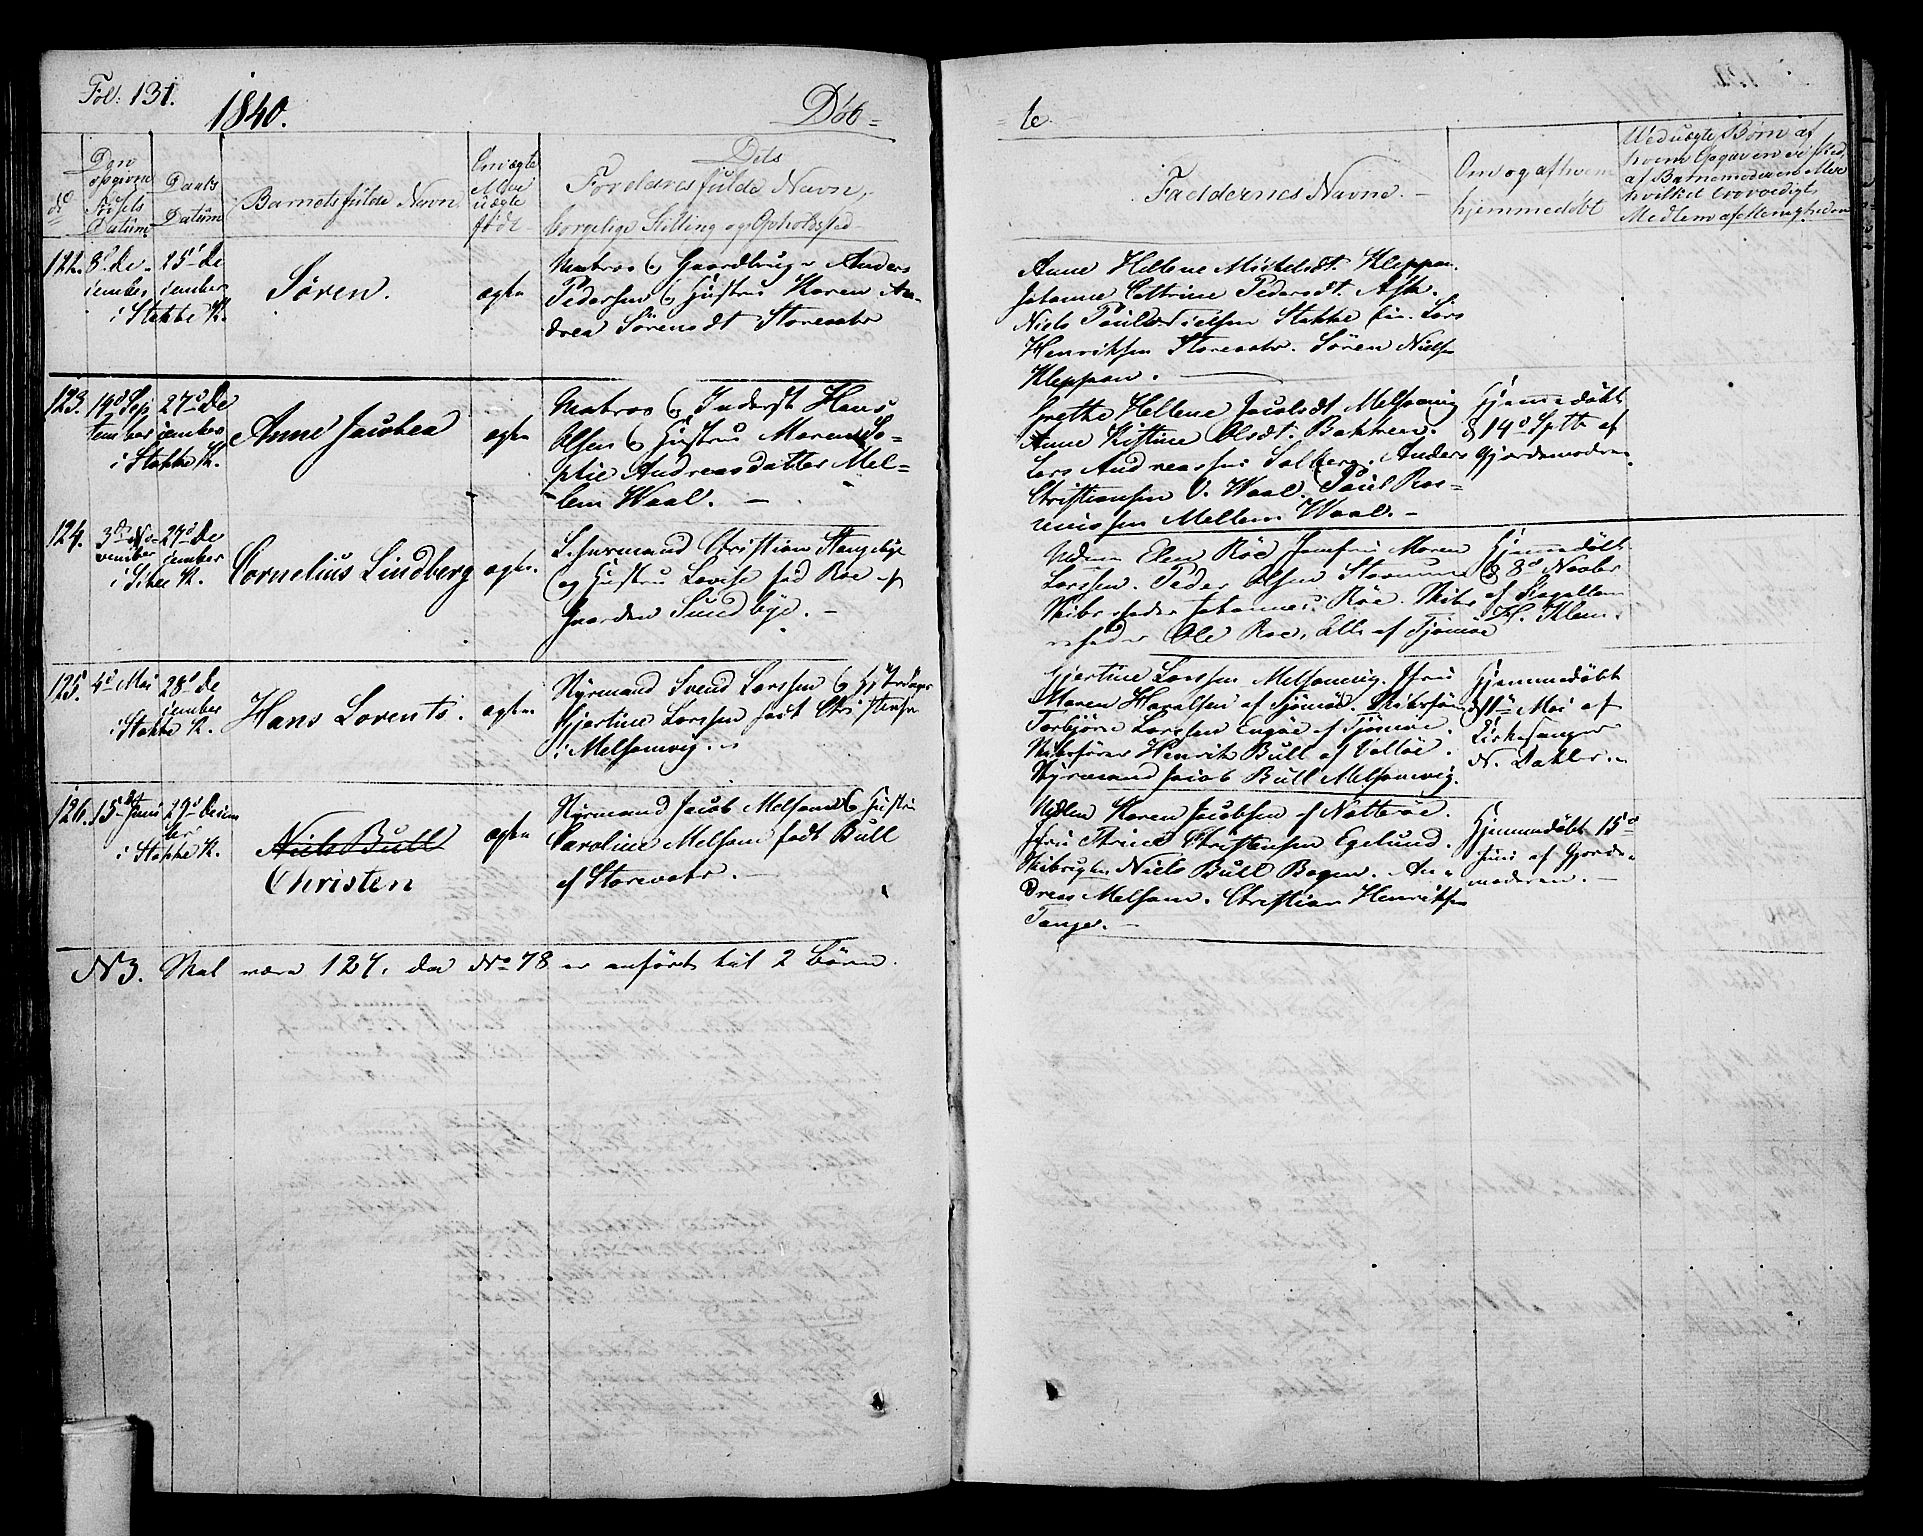 Fol: 131.
1840.
Døb=
=te.
No
Den opgivne Fødsels Datum
Daabs Datum
Barnets fulde Navn
Om ægte eller uægte født
Dets Forældres fulde Navn,
borgelige Stilling og Opholdssted
Faddernes Navne. —
Om og af hvem hjemmedøbt
Ved uægte Børn af
hvem Opgaven er sked,
af Barnemoderen eller
hvilket troværdigt
Medlem af Menigheden
122.
8de De-
cember
25de De
cember
i Stokke K.
Søren.
ægte
Matros & Gaardbruger Anders
Pedersen & Hustru Karen An-
drea Sörensdt Storevahr
Anne Hellene Mickelsdt. Kleppan.
Johanne Cathrine Pedersdt. Ask.
Niels Nielsen Stokke Lars
Henriksen Storevahr. Sören Nielsen
Kleppan. —
123.
Sep
tember
27de De
cember
i Stokke K.
Anne Jacobea
ægte
Matros & Inderst Hans
Olsen & Hustru Maren So-
phie Andreasdatter Mel-
lem Waal. —
Grethe Hellene Jacobsdt Melsomvig
Anne Kistine Olsdt. Bakken.
Lars Andreassen Solberg. Anders
Christiansen V. Waal. Paul Ras-
mussen Mellem Waal. —
Hjemmedöbt
d 14de Septb af
Gjordemoderen.
124.
3de No-
vember
27de De
cember
i K.
Cornelius Lindberg
ægte.
Christian Stangebye
og Hustru Lovise föd Roe af
Gaarden Sundbye. —
Elen Röe Jomfru Maren
Larssen. Peder Olsen
Skibsreder Johannes Röe. Skibs
reder Ole Roe, Alle af Tjömöe
Hjemmedöbt
d 8de Novbr
af Kapellan
H. Klem.
125.
4de Mai
28de De
cember
i Stokke K.
Hans Lorents.
ægte
Styrmand Svend Larssen &
Gjertine Larssen födt Christensen
i Melsomvig.
Gjertine Larssen Melsomvig. Jfru
Maren af Tjömöe. Skibsförer
Torbjörn Larssen Engöe af Tjömöe.
Skibsförer Henrik Bull af Valløe.
Styrmand Jacob Bull Melsomvig.
Hjemmedöbt
Mai af
Kirkesanger
N. Dahler.
126.
15de Juni
29de Decem
ber
i Stokke K.
Niels Bull
Christen
ægte
Styrmand Jacob Melsom & Hustru
Caroline Melsom födt Bull
af Storevahr. —
Karen Jacobsen af Nötteröe.
Jfru Trine Christensen Egelund.
Niels Bull Bogen. An-
dreas Melsom. Christian Henriksen
Tange. —
Hjemmedöbt 15de
Juni af Gjorde-
moderen. —
NB. Skal være 127, da No 78 er anført til 2 Börn.